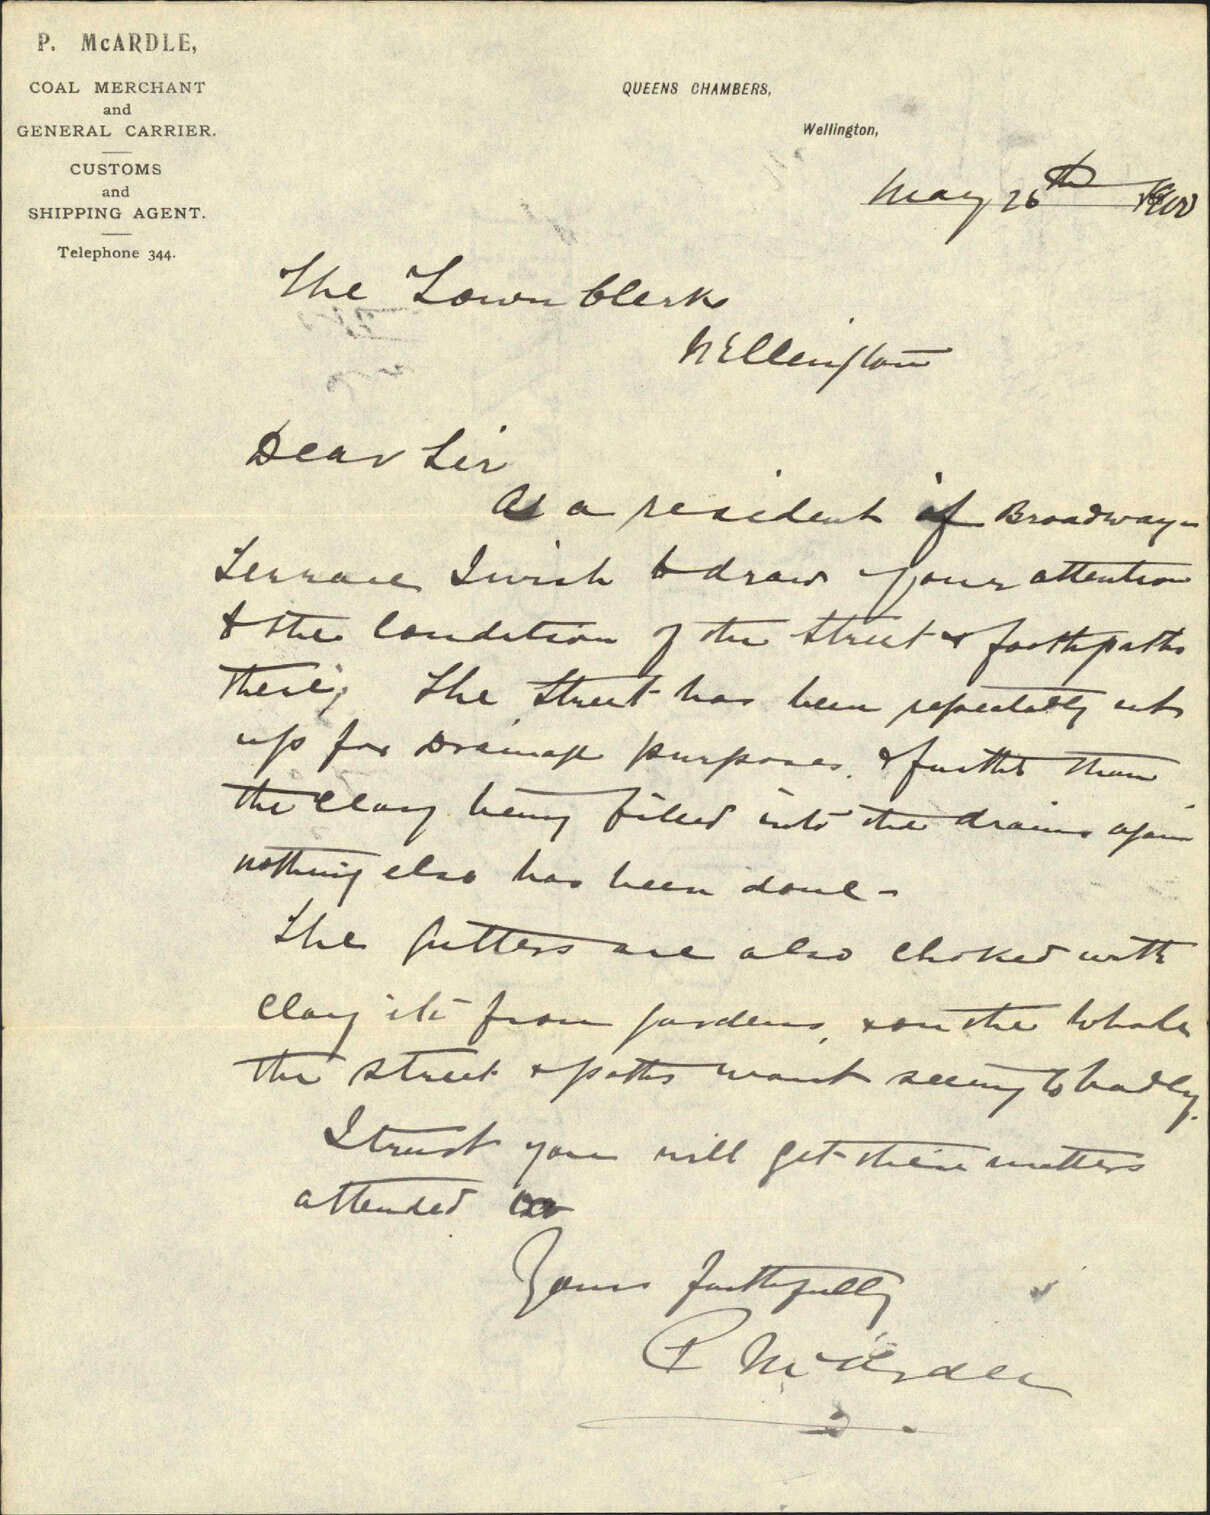 P. McARDLE,
COAL MERCHANT
and
GENERAL CARRIER.
CUSTOMS
and
SHIPPING AGENT.
Telephone 344.
QUEENS CHAMBERS,
Wellington,
May 26th 1900
The Town Clerk
Wellington
Dear Sir
As a resident of Broadway-
Terrace I wish to draw your attention
to the condition of the street & footpaths
there; The street has been repeatedly cut
up for Drainage purposes. & further than
the clay being filled into the drains again
nothing else has been done -
The gutters are also choked with
clay etc from gardens, & on the whole
the street & paths want seeing to badly.
I trust you will get these matters
attended to
Yours faithfully
P McArdle